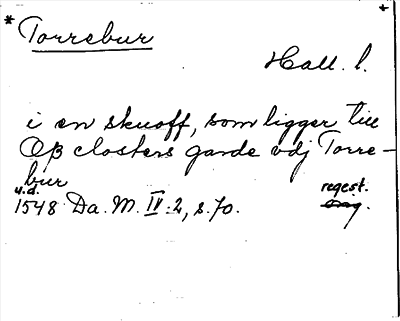 * Torrebur +
Hall. l.
i en skuoff, som ligger till
Ø̨ß closters garde vdj Torre-
bur
u.d. regest.
1548 Da. M. IV:2, s. 70. orig.